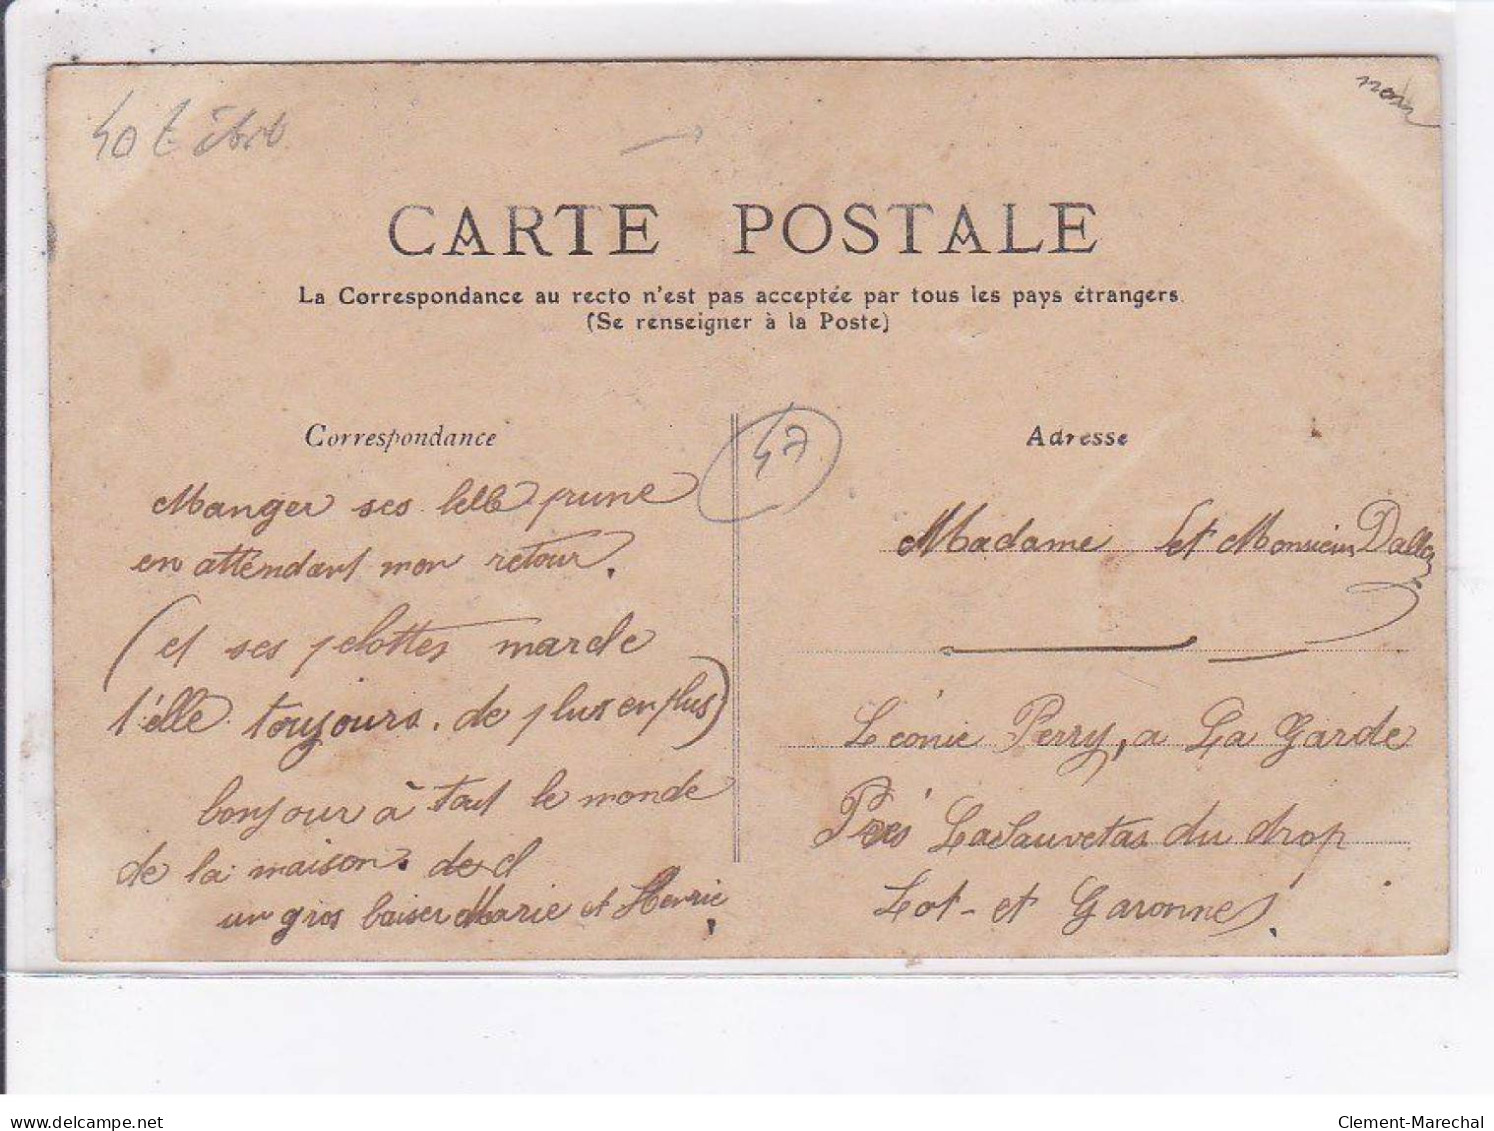 40 t
nom
CARTE POSTALE
La Correspondance au recto n'est pas acceptée par tous les pays étrangers
(Se renseigner à la Poste)
Correspondance
47
Adresse
Manger ses belle prune
en attendant mon retour.
(et ses pelottes marche
t'elle toujours. de plus en plus)
bonjour à tout le monde
de la maison. de
un gros baiser Marie et Henrie
Madame et Monsieur
Léonie Perry, a La Garde
Près La Sauvetas du drop
Lot-et Garonne.
delcampe.net
Clement-Marechal